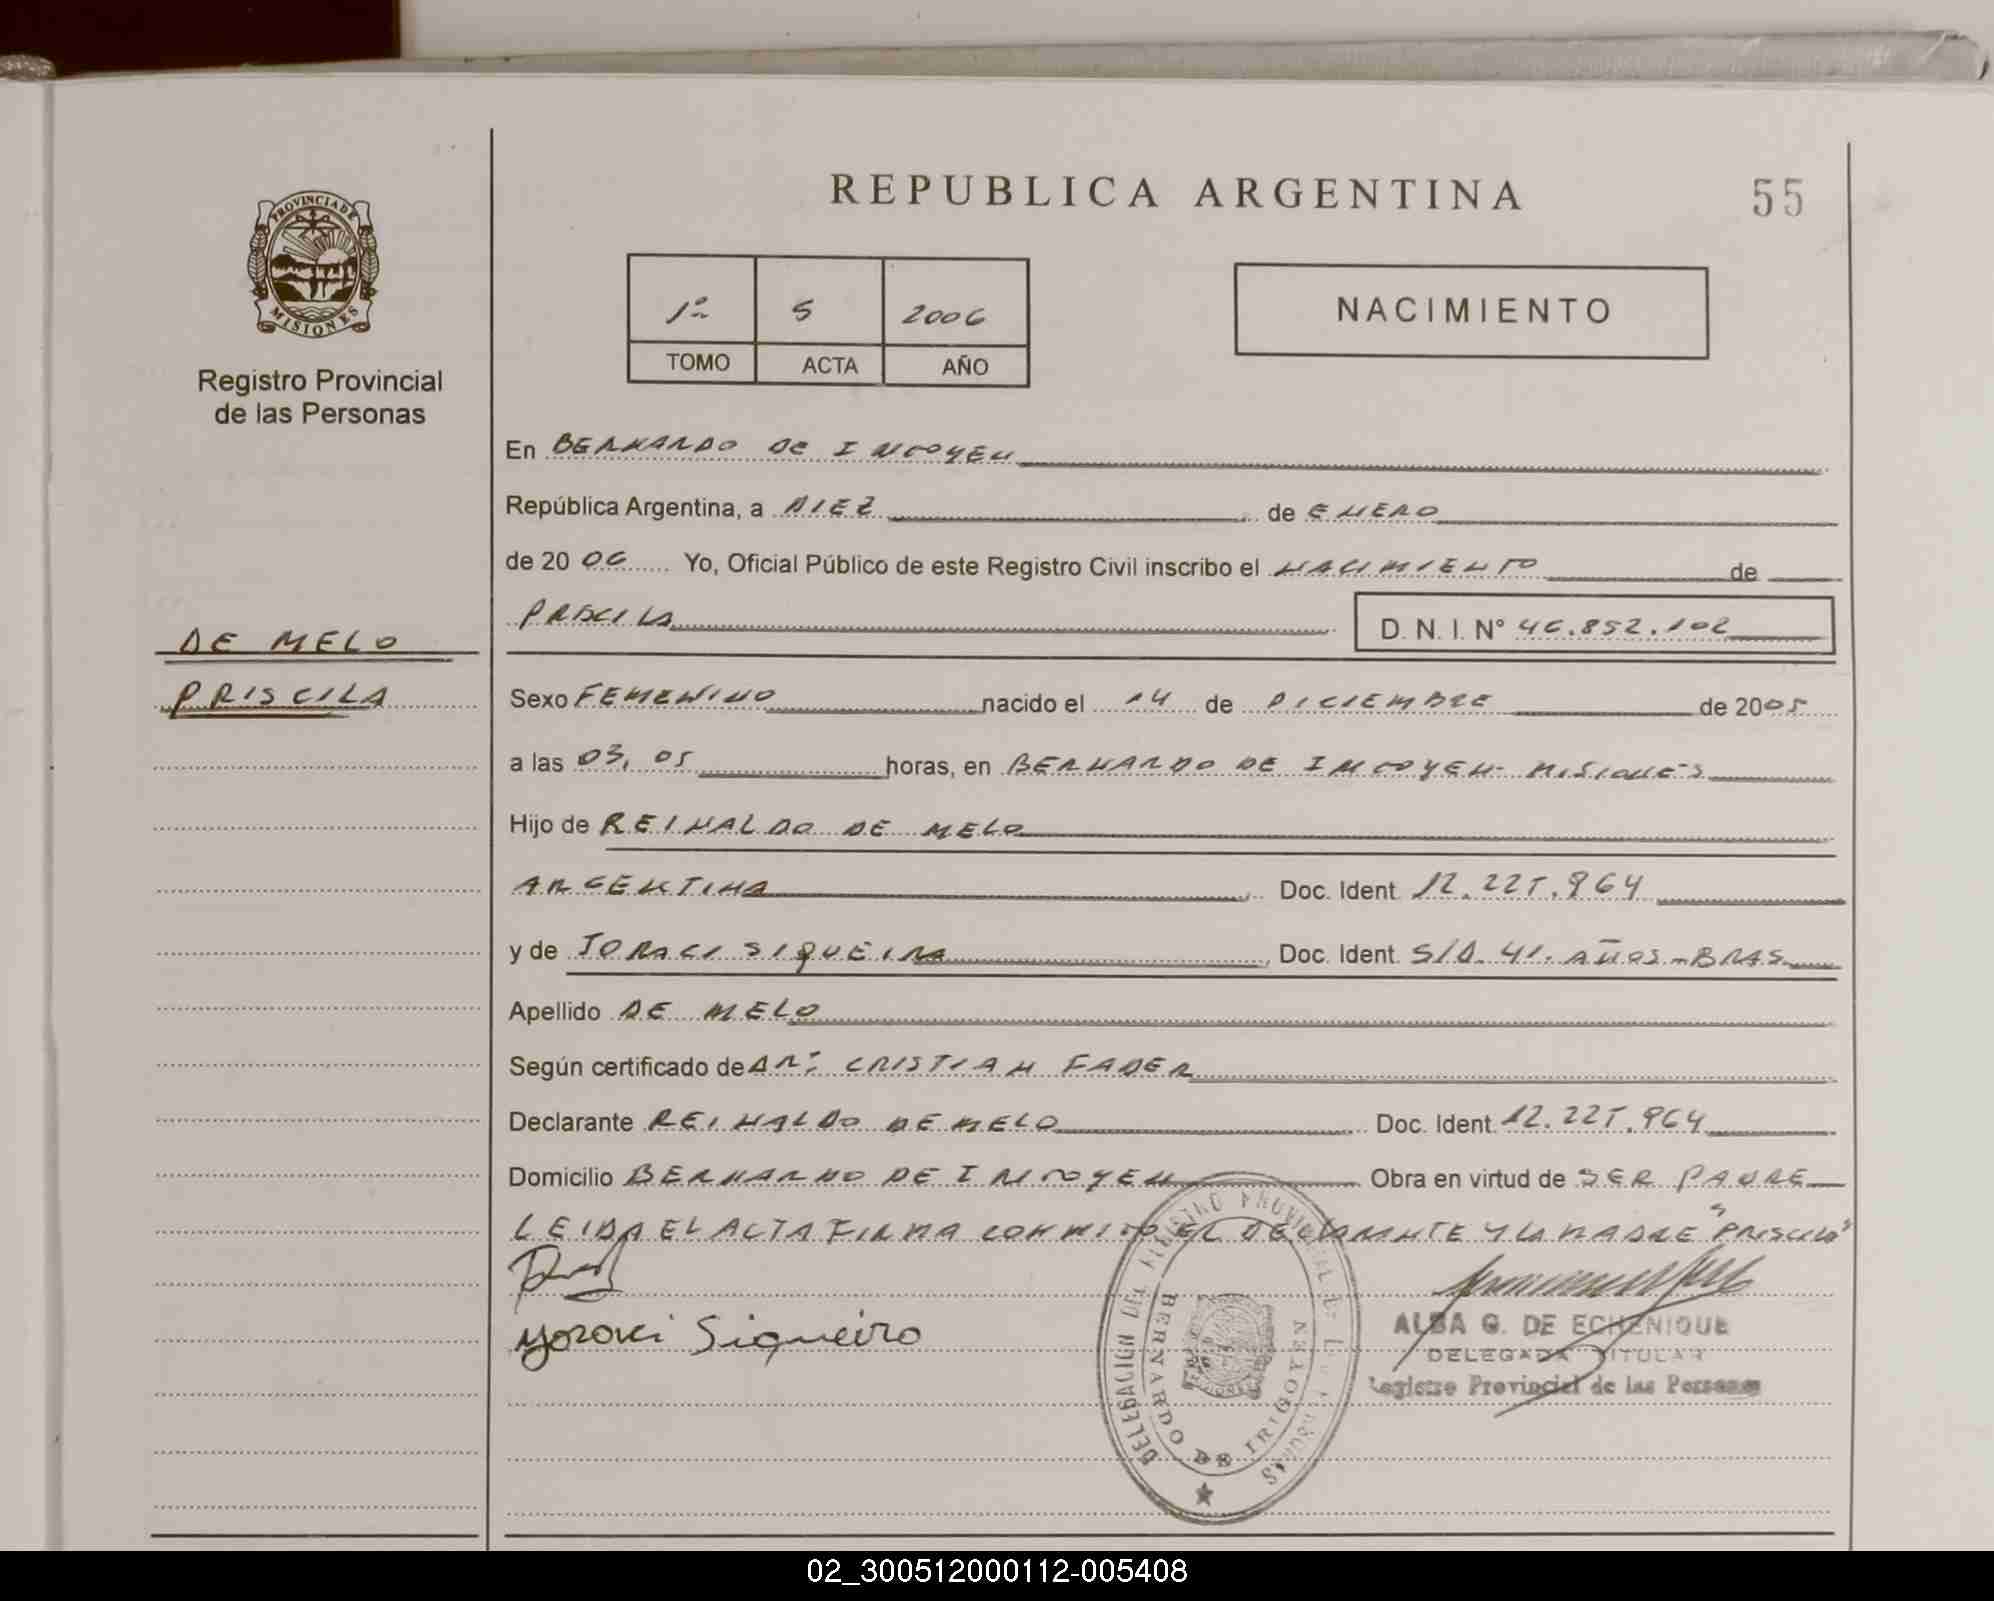 REPUBLICA ARGENTINA
55
PROVINCIA DE MISIONES
Registro Provincial
de las Personas
1º 5 2006
TOMO ACTA AÑO
NACIMIENTO
En BERNARDO DE IRIGOYEN
República Argentina, a DIEZ de ENERO
de 20 06 Yo, Oficial Público de este Registro Civil inscribo el NACIMIENTO de
PRISCILA D. N. I. N° 46.852.102
DE MELO
PRISCILA
Sexo FEMENINO nacido el 14 de DICIEMBRE de 2005
a las 03,05 horas, en BERNARDO DE IRIGOYEN-MISIONES
Hijo de REINALDO DE MELO
ARGENTINA Doc. Ident. 12.225.964
y de JORACI SIQUEIRA Doc. Ident. S/D. 41. AÑOS-BRAS
Apellido DE MELO
Según certificado de DR: CRISTIAN FADER
Declarante REINALDO DE MELO Doc. Ident. 12.225.964
Domicilio BERNARDO DE IRIGOYEN Obra en virtud de SER PADRE
LEIDA EL ACTA FIRMA CONMIGO EL DECLARANTE Y LA MADRE "PRISCILA"
Joraci Siqueira
DELEGACION DEL REGISTRO PROVINCIAL DE LAS PERSONAS
BERNARDO DE IRIGOYEN
ALBA G. DE ECHENIQUE
DELEGADA TITULAR
Registro Provincial de las Personas
02_300512000112-005408